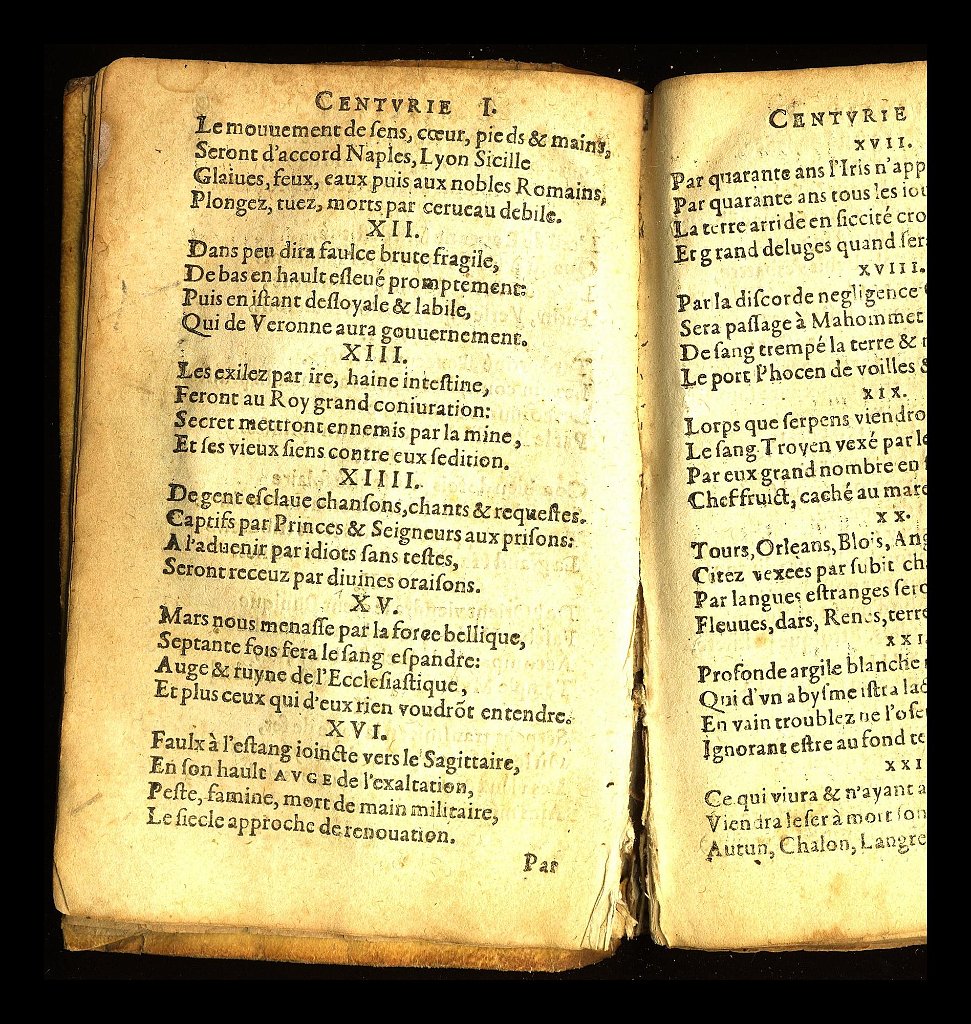 CENTVRIE I.
Le mouuement de ſens, cœur, pieds & mains,
Seront d'accord Naples, Lyon Sicille
Glaiues, feux, eaux puis aux nobles Romains,
Plongez, tuez, morts par cerueau debile.
XII.
Dans peu dira faulce brute fragile,
De bas en hault eſleué promptement:
Puis en iſtant deſloyale & labile,
Qui de Veronne aura gouuernement.
XIII.
Les exilez par ire, haine inteſtine,
Feront au Roy grand coniuration:
Secret mettront ennemis par la mine,
Et ſes vieux ſiens contre eux ſedition.
XIIII.
De gent eſclaue chanſons, chants & requeſtes.
Captifs par Princes & Seigneurs aux priſons:
A l'aduenir par idiots ſans teſtes,
Seront receuz par diuines oraiſons.
XV.
Mars nous menaſſe par la force bellique,
Septante fois fera le ſang eſpandre:
Auge & ruyne de l'Eccleſiaſtique,
Et plus ceux qui d'eux rien voudrõt entendre.
XVI.
Faulx à l'eſtang ioincte vers le Sagittaire,
En ſon hault AVGE de l'exaltation,
Peſte, famine, mort de main militaire,
Le ſiecle approche de renouation.
Par
CENTVRIE
XVII.
Par quarante ans l'Iris n'app
Par quarante ans tous les iou
La terre arride en ſiccité cro
Et grand deluges quand ſera
XVIII.
Par la diſcorde negligence
Sera paſſage à Mahommet
De ſang trempé la terre &
Le port Phocen de voilles &
XIX.
Lorps que ſerpens viendro
Le ſang Troyen vexé par le
Par eux grand nombre en
Chef fruict, caché au mare
XX.
Tours, Orleans, Blois, Ang
Citez vexees par ſubit ch
Par langues eſtranges ſero
Fleuues, dars, Renes, terre
XXI
Profonde argile blanche
Qui d'vn abyſme iſtra lac
En vain troublez ne l'oſe
Ignorant eſtre au fond te
XXI
Ce qui viura & n'ayant a
Viendra leſer à mort ſon
Autun, Chalon, Langre